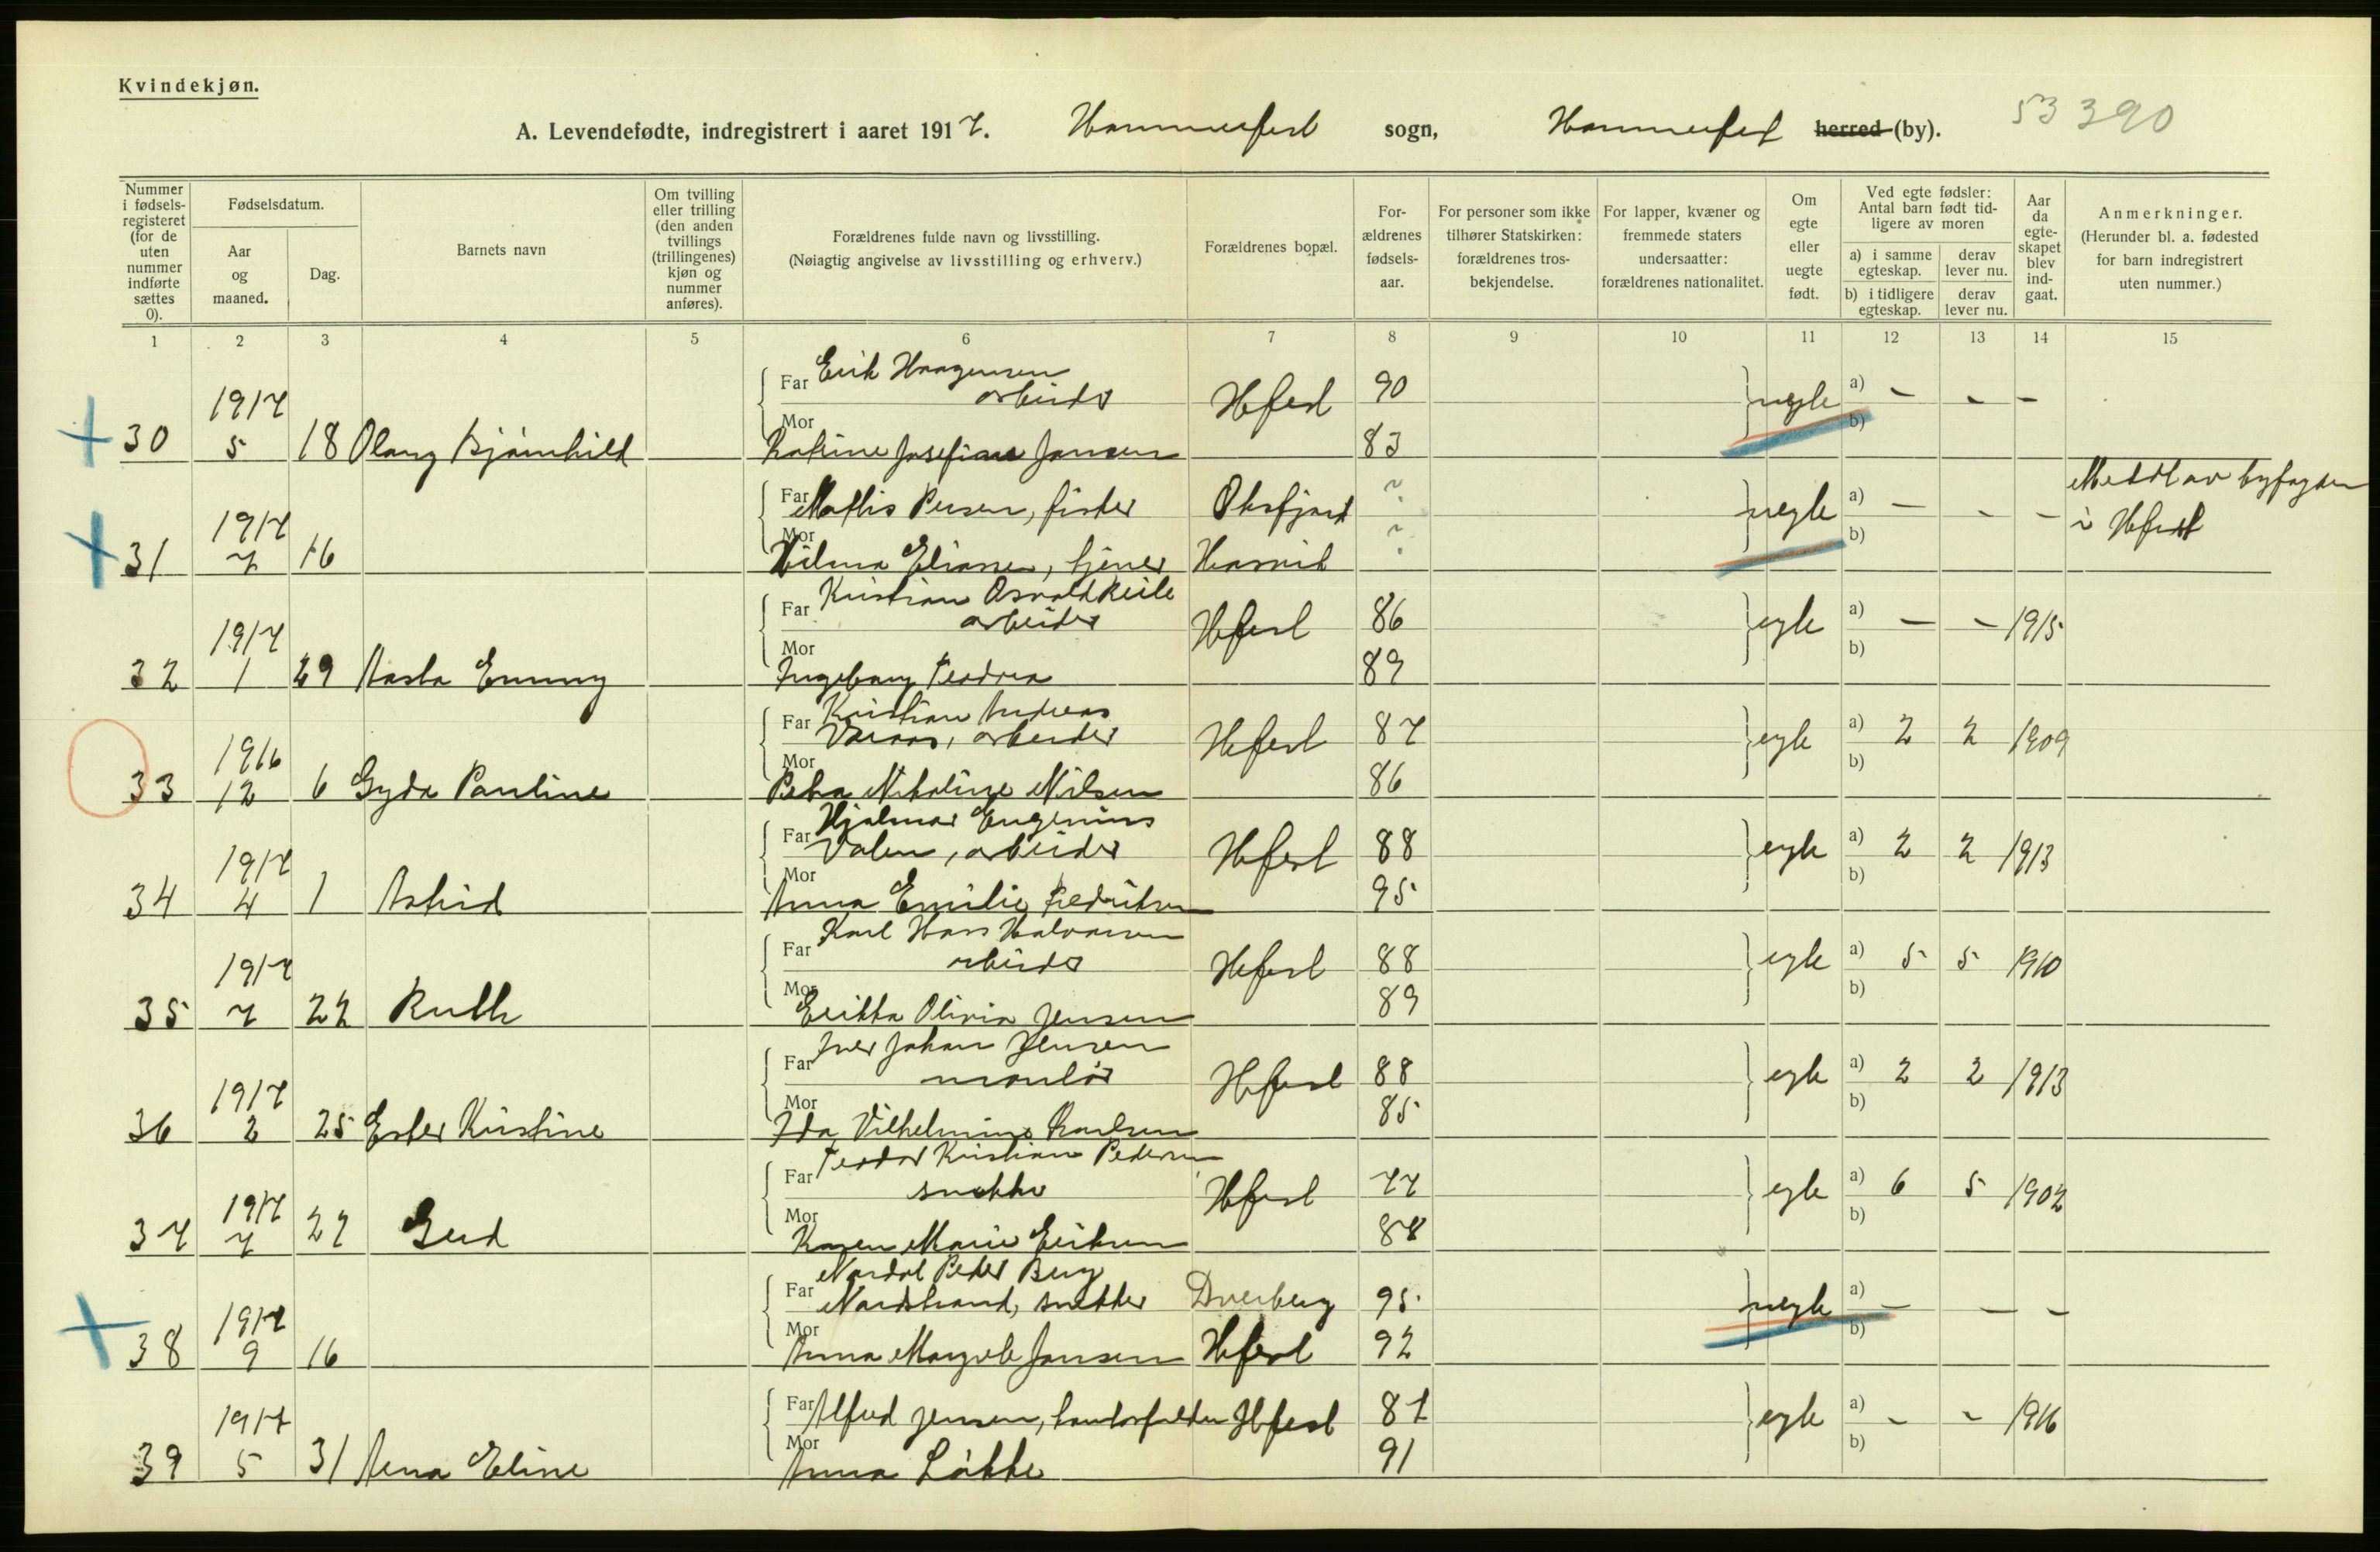 Kvindekjøn.
A. Levendefødte, indregistrert i aaret 1917. Hammerfest sogn, Hammerfest herred (by). 53 390
Nummer i fødselsregisteret (for de uten nummer indførte sættes 0).
Fødselsdatum.
Aar og maaned.
Dag.
Barnets navn
Om tvilling eller trilling (den anden tvillings (trillingenes) kjøn og nummer anføres).
Forældrenes fulde navn og livsstilling.
(Nøiagtig angivelse av livsstilling og erhverv.)
Forældrenes bopæl.
Forældrenes fødselsaar.
For personer som ikke tilhører Statskirken: forældrenes trosbekjendelse.
For lapper, kvæner og fremmede staters undersaatter: forældrenes nationalitet.
Om egte eller uegte født.
Ved egte fødsler: Antal barn født tidligere av moren
a) i samme egteskap.
derav lever nu.
b) i tidligere egteskap.
derav lever nu.
Aar da egteskapet blev indgaat.
Anmerkninger.
(Herunder bl. a. fødested for barn indregistrert uten nummer.)
1 2 3 4 5 6 7 8 9 10 11 12 13 14 15
Far Erik Haagensen
arbeider Hfest 90 uegte a) - - -
1917
Mor b)
30 5 18 Olaug Bjørnhild Katrine Josefine Jansen 83
Far Mathis Persen, fisker Øksfjord ? uegte a) - - - Meddt av byfogden
i Hfest
1917
Mor b)
31 7 16 Vilma Eliassen, tjener Hasvik ?
Far Kristian Osvald
arbeider Hfest 86 egte a) - - 1915
1917
Mor b)
32 1 29 Aasta Emmy Ingeborg Teodora 89
Far Kristian Andreas
arbeider Hfest 87 egte a) 2 2 1909
1916
Mor b)
33 12 6 Gyda Pauline Petra Nikoline Nilsen 86
Far Hjalmar Eugenius
Valen, arbeider Hfest 88 egte a) 2 2 1913
1917
Mor b)
34 4 1 Astrid Anna Emilie Fredriksen 95
Far Karl Hans Halvorsen
arbeider Hfest 88 egte a) 5 5 1910
1917
Mor b)
35 7 22 Ruth Erikka Olivia Jensen 89
Far Iver Johan Jensen
montør Hfest 88 egte a) 2 2 1913
1917
Mor b)
36 2 25 Ester Kristine Ida Vilhelmine Karlsen 85
Far Teodor Kristian Pedersen
snekker Hfest 77 egte a) 6 5 1902
1917
Mor b)
37 7 27 Gerd Karen Marie Eriksen
Far Nordal Peder Berg
Nordstrand, snekker Dverberg 95 uegte a) - - -
1917
Mor b)
38 9 16 Anna Margrete Jansen Hfest 92
Far Alfred Jensen, Hfest 81 egte a) - - 1916
1917
Mor b)
39 5 31 Eline Anna Løkke 91